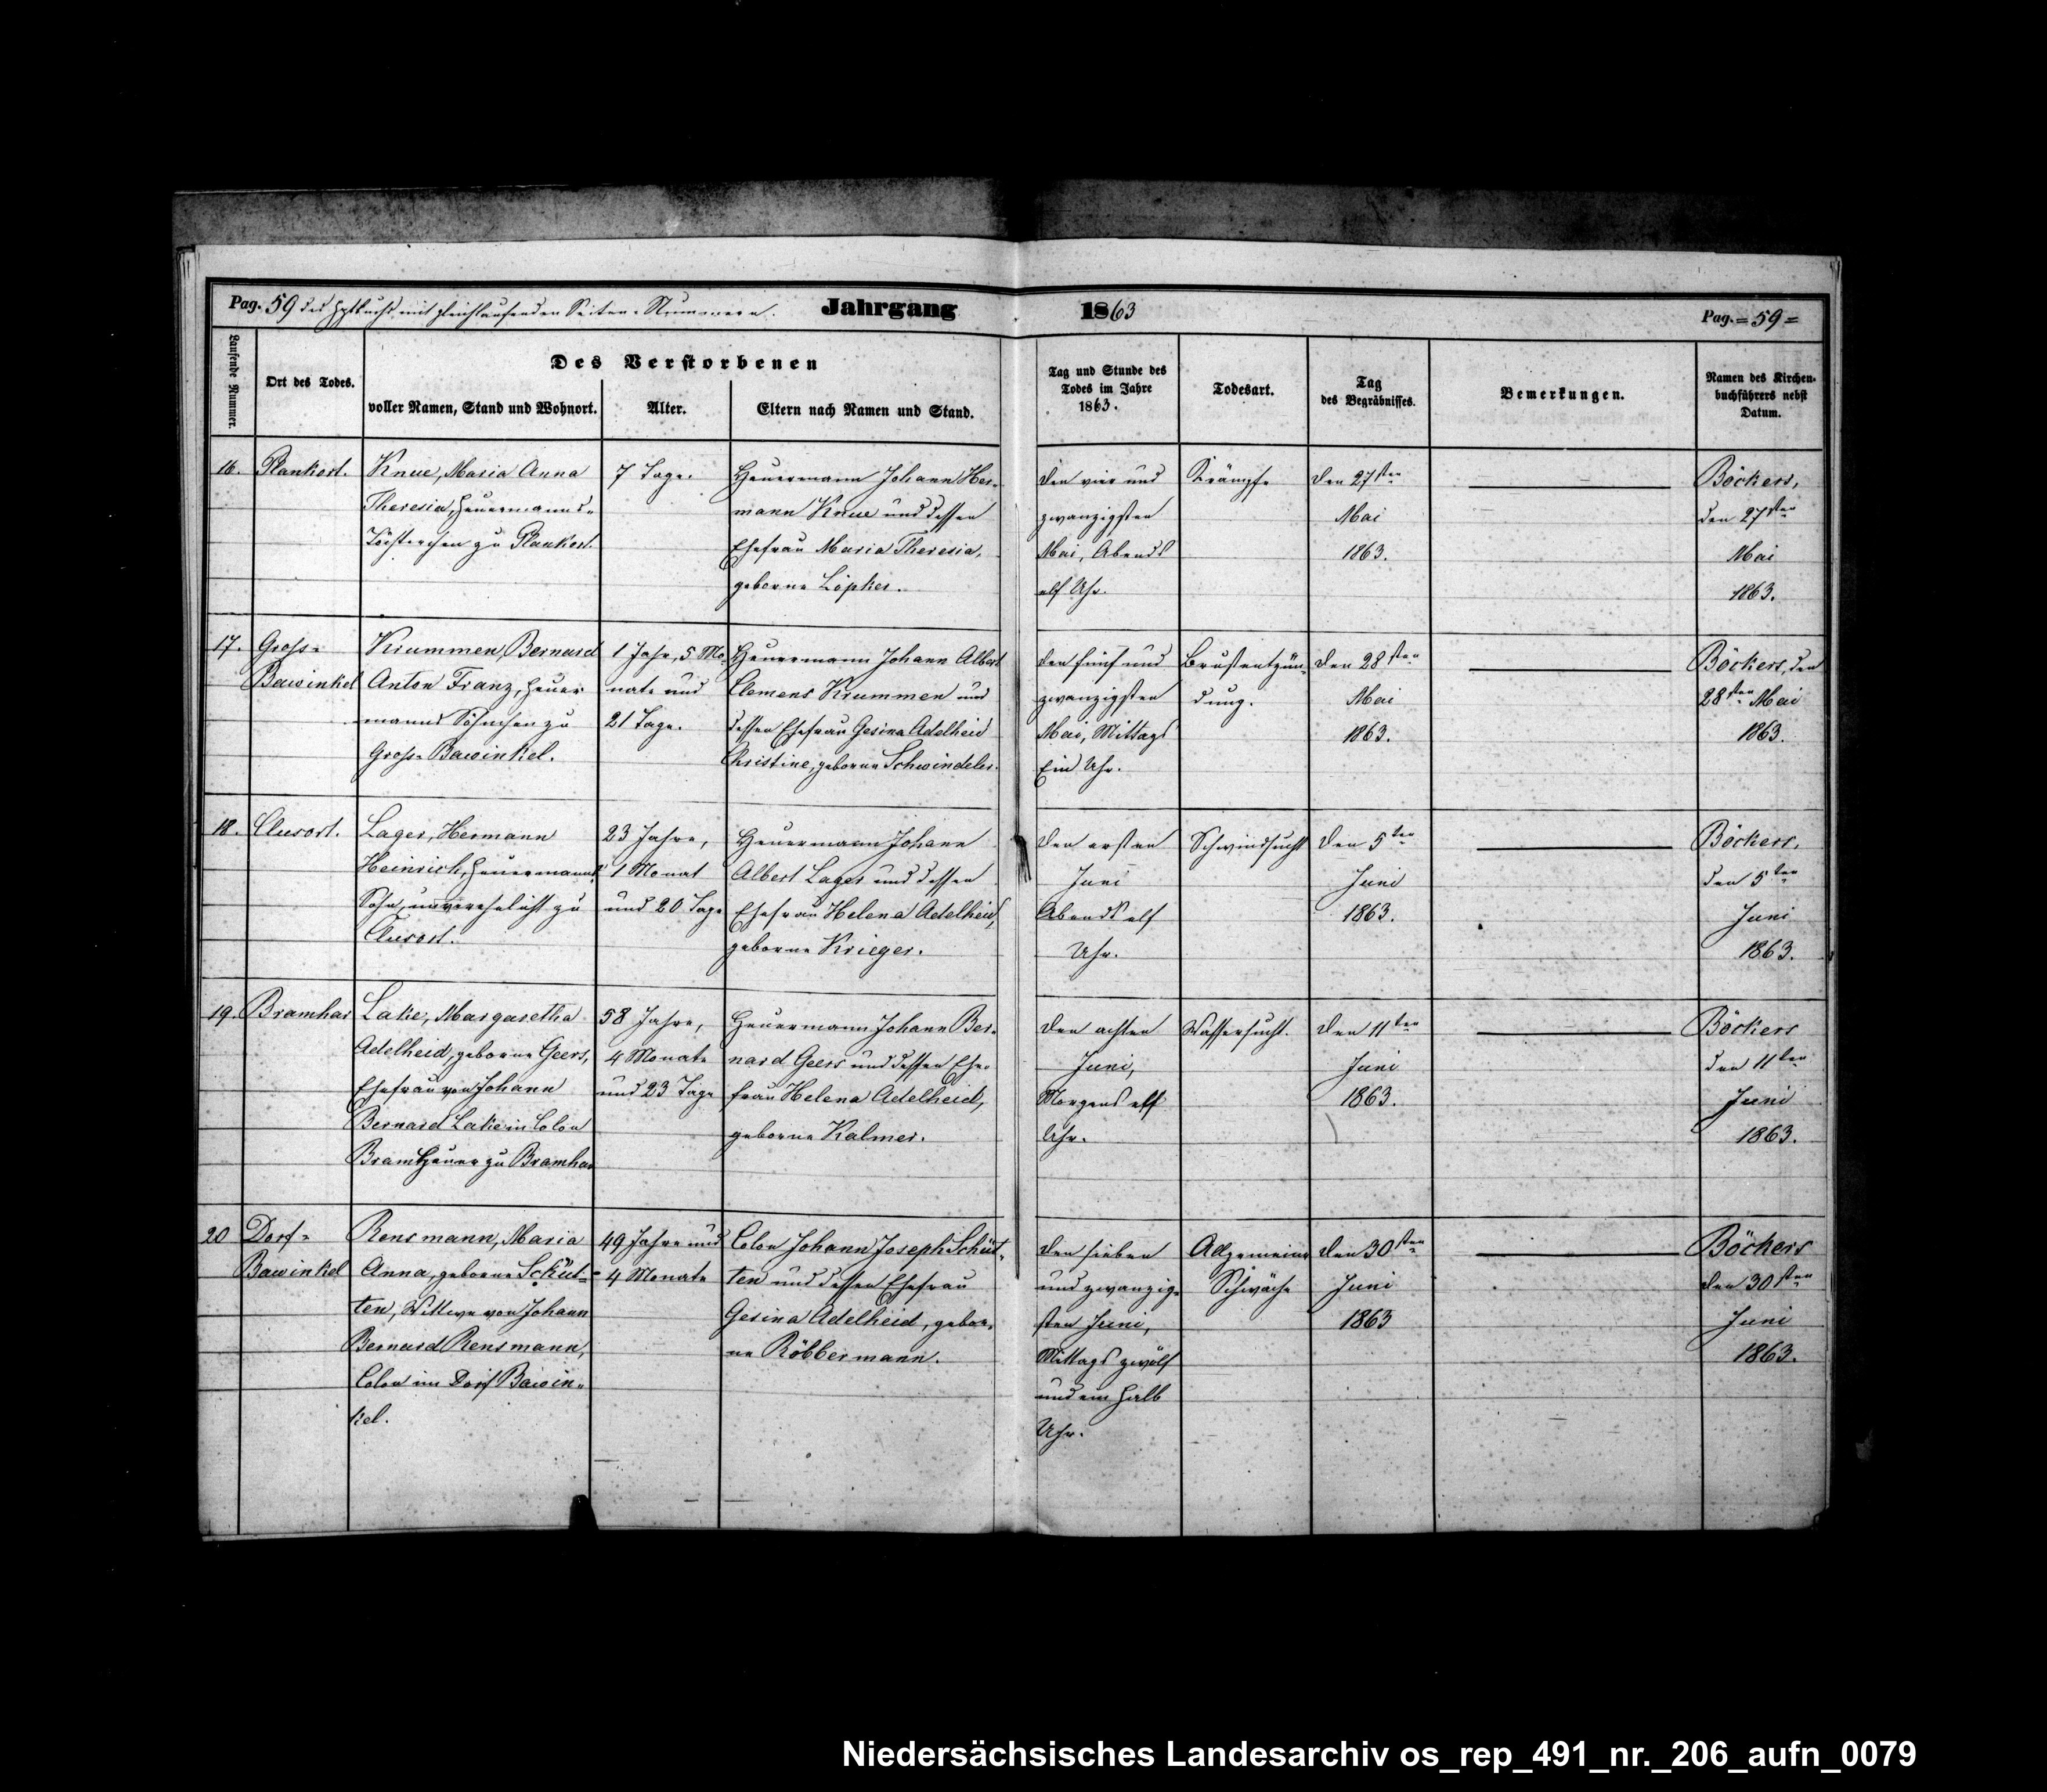 Pag. 59 des Hptbuchs mit gleichlaufenden Seiten-Nummern. Jahrgang 1863 Pag. = 59 =
Laufende Nummer.
Ort des Todes.
Des Verstorbenen
voller Namen, Stand und Wohnort.
Alter.
Eltern nach Namen und Stand.
Tag und Stunde des
Todes im Jahre
1863.
Todesart.
Tag
des Begräbnisses.
Bemerkungen.
Namen des Kirchen-
buchführers nebst
Datum.
16.
Plankort.
Knue, Maria Anna
Theresia, Heuermanns-
Töchterchen zu Plankort.
7 Tage.
Heuermann Johann Her-
mann Knue und dessen
Ehefrau Maria Theresia,
geborne Löpker.
den vier und
zwanzigsten
Mai, Abends
elf Uhr.
Krämpfe
den 27sten
Mai
1863.
Böckers,
den 27sten
Mai
1863.
17.
Gross-
Bawinkel
Krummen, Bernard
Anton Franz, Heuer-
manns Söhnchen zu
Gross-Bawinkel.
1 Jahr, 5 Mo-
nate und
21 Tage.
Heuermann Johann Albert
Clemens Krummen und
dessen Ehefrau Gesina Adelheid
Christine, geborne Schwindeler.
den fünf und
zwanzigsten
Mai, Mittags
Ein Uhr.
Brustentzün-
dung.
den 28sten
Mai
1863.
Böckers, den
28sten Mai
1863.
18.
Clusort.
Lager, Hermann
Heinrich, Heuermanns
Sohn, unverehelicht zu
Clusort.
23 Jahre,
1 Monat
und 20 Tage
Heuermann Johann
Albert Lager und dessen
Ehefrau Helena Adelheid,
geborne Krieger.
den ersten
Juni
Abends elf
Uhr.
Schwindsucht
den 5ten
Juni
1863.
Böckers,
den 5ten
Juni
1863.
19.
Bramhar
Lake, Margaretha
Adelheid, geborne Geers,
Ehefrau von Johann
Bernard Lake in Colon
Brams Heuer zu Bramhar
58 Jahre,
4 Monate
und 23 Tage
Heuermann Johann Ber-
nard Geers und dessen Ehe-
frau Helena Adelheid,
geborne Kalmer.
den achten
Juni,
Morgens elf
Uhr.
Wassersucht.
den 11ten
Juni
1863.
Böckers
den 11ten
Juni
1863.
20
Dorf-
Bawinkel
Rensmann, Maria
Anna, geborne Schüt-
ten, Wittwe von Johann
Bernard Rensmann,
Colon im Dorf Bawin-
kel.
49 Jahre und
4 Monate
Colon Johann Joseph Schüt-
ten und dessen Ehefrau
Gesina Adelheid, gebor-
ne Röbbermann.
den sieben
und zwanzig-
sten Juni,
Mittags zwölf
und ein halb
Uhr.
Allgemeine
Schwäche
den 30sten
Juni
1863
Böckers
den 30sten
Juni
1863.
Niedersächsisches Landesarchiv os_rep_491_nr._206_aufn_0079